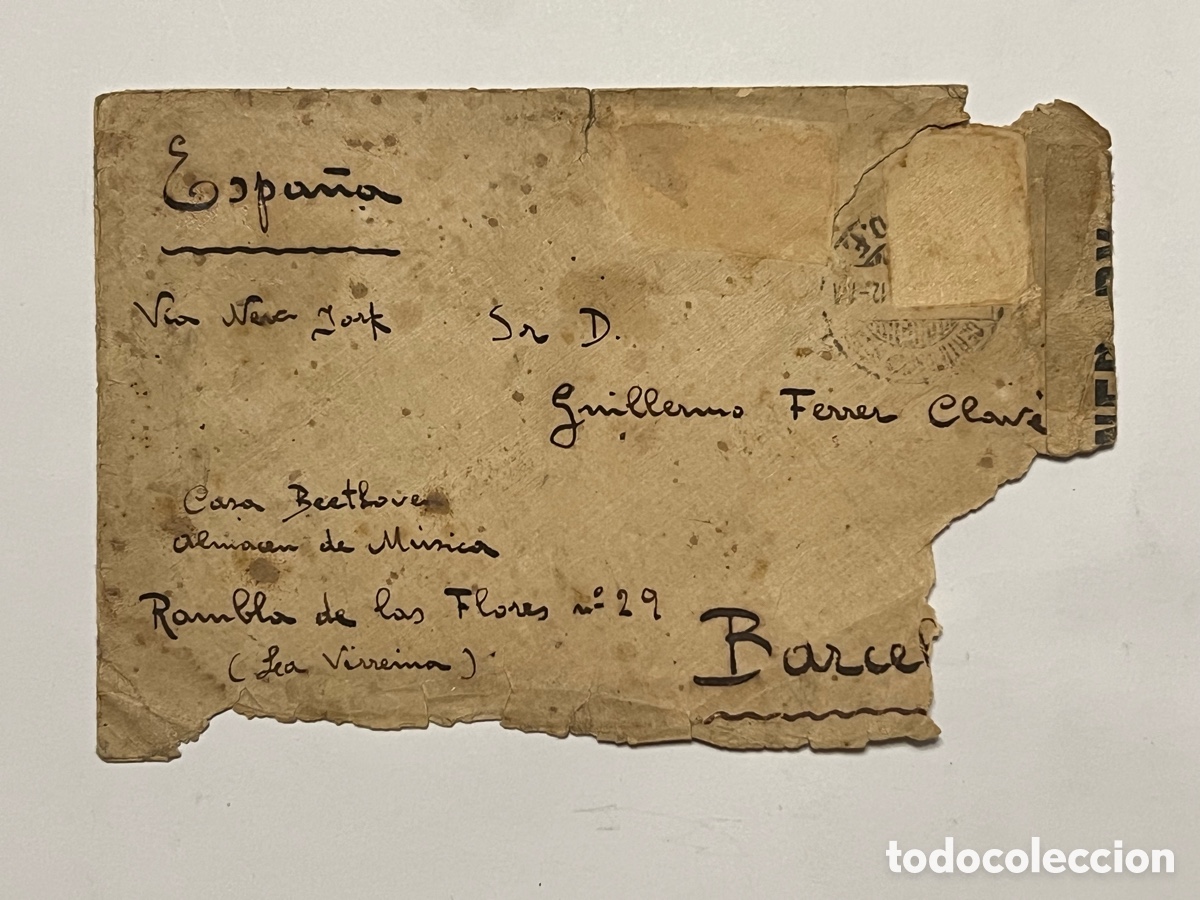 España
Via New York
Sr D.
Guillermo Ferrer Clavé
Casa Beethoven
Almacen de Música
Rambla de las Flores nº 29
(Lea Virreina)
Barcel
D.F.
12-1
NER BY
todocoleccion